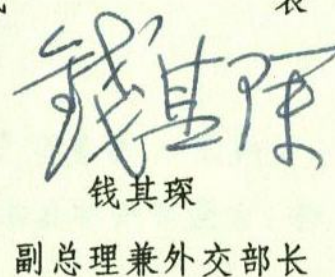 表
钱其琛
钱其琛
副总理兼外交部长